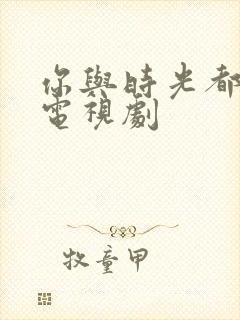 你與時光都
電視劇
牧童甲